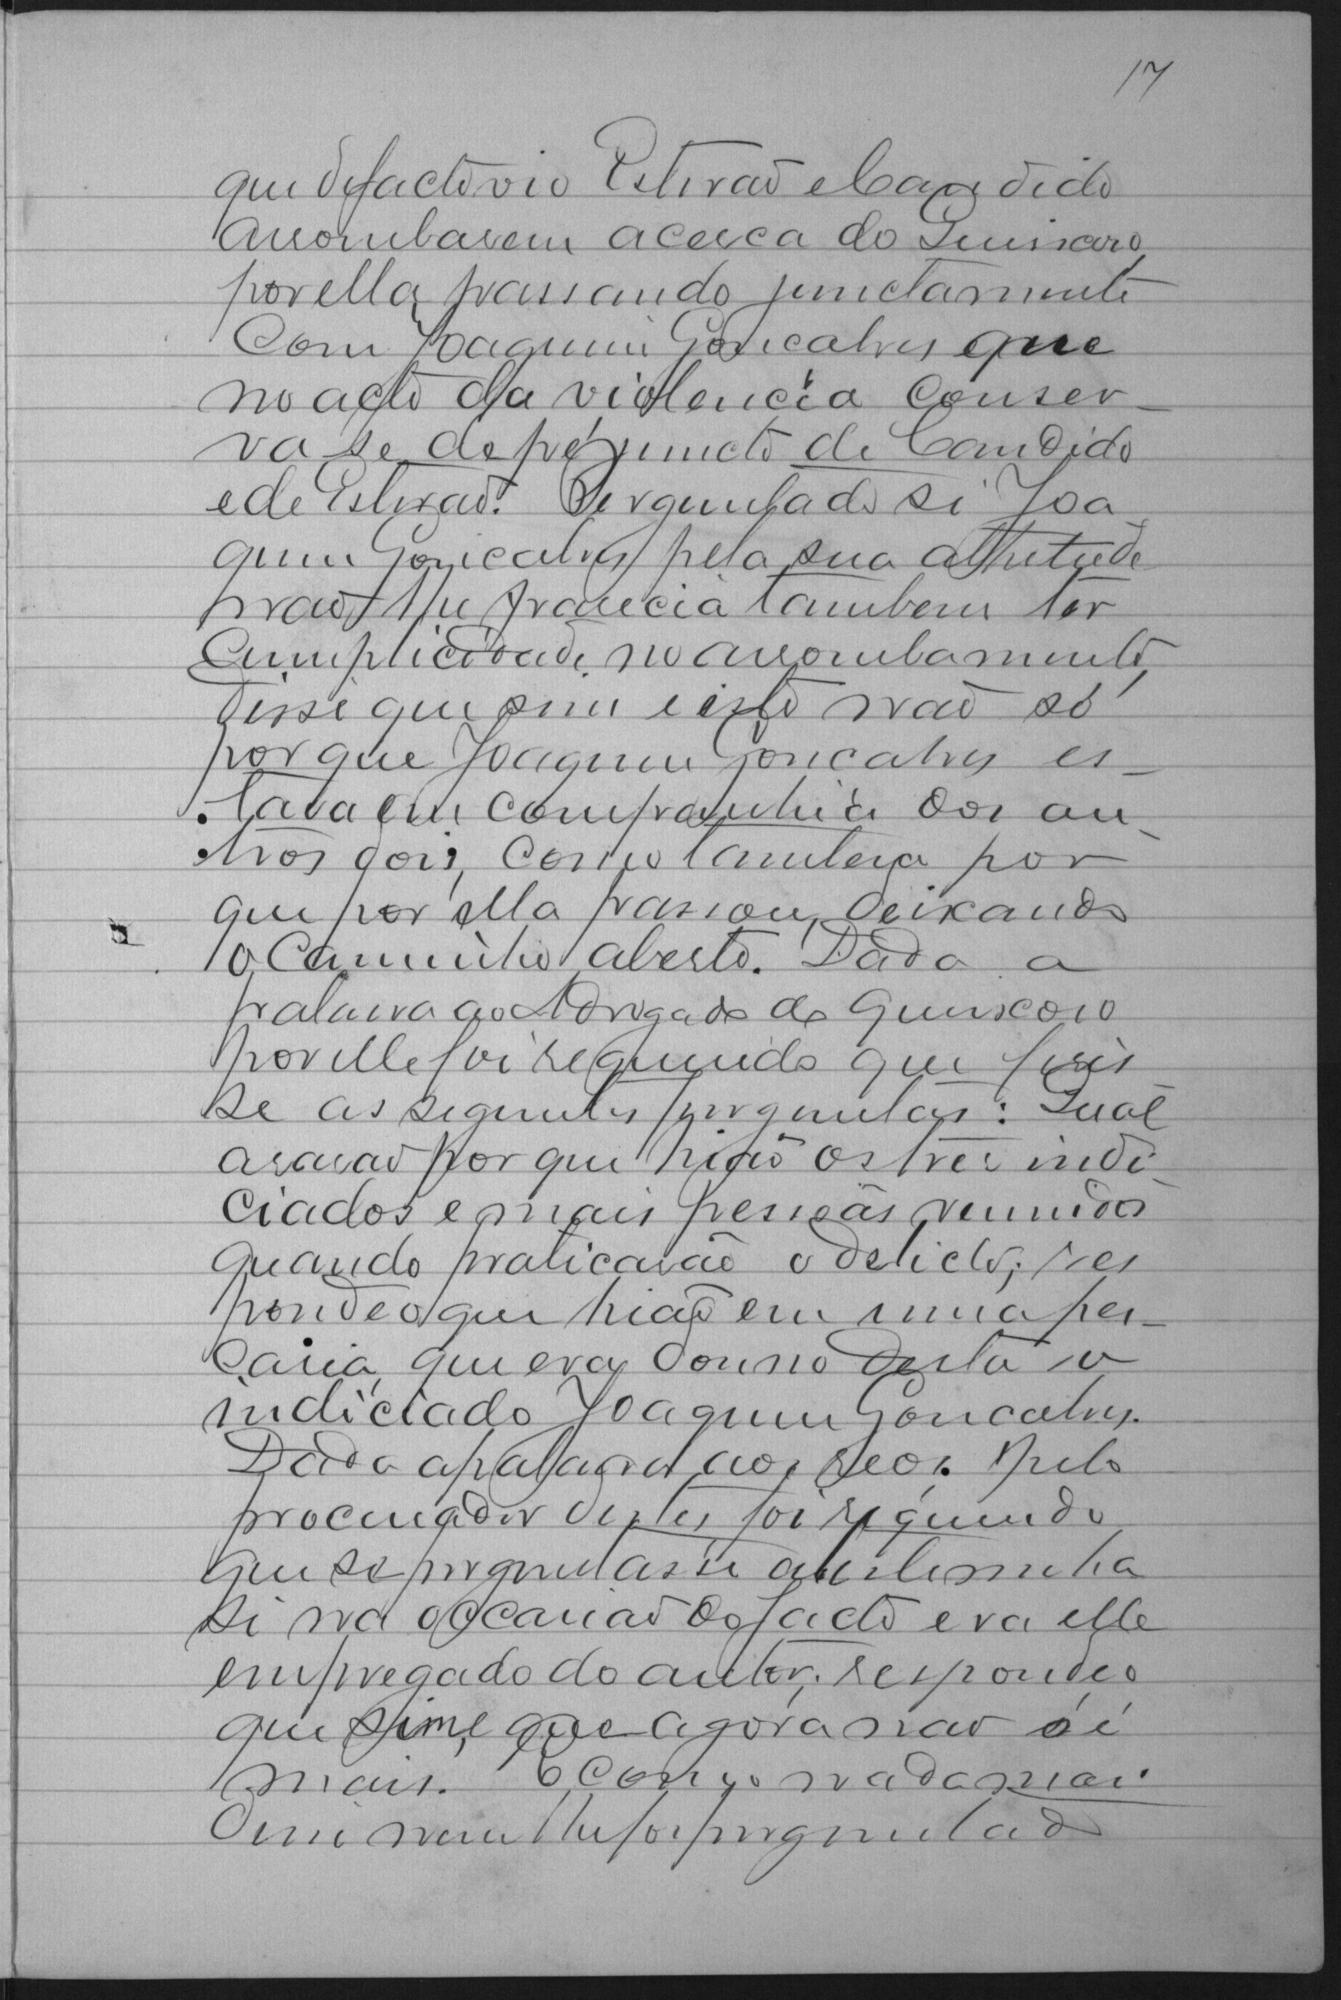 17
que defacto vio Estevaõ e Candido
arrombarem a cerca do
por ella passando junctamente
com Joaquim Goncalves que
no acto da violencia conser-
va se de pé juncto de Candido
e de Estevaõ. Perguntado si Joa
quim Goncalves pela sua attitude
naõ lhe parecia tambem ter
cumplicidade no arrombamento,
disse que sim e isto naõ só
por que Joaquim Goncalves es-
tava em companhia dos ou-
tros dois, como tambem por
que por ella passou, deixando
o caminho aberto. Dada a
palavra ao Advogado do
por elle foi requerido que fises
se as seguintes perguntas: Qual
a rasaõ por que hiaõ os tres indi-
ciados e mais pessoas reunidos
quando praticaraõ o delicto; res
pondeo que hiaõ em uma pes-
caria, que era donno desta o
indiciado Joaquim Goncalves.
Dada a palavra aos reos. Pelo
procurador destes foi requerido
que se perguntasse a testemunha
si na occasiaõ do facto era elle
empregado do autor; respondeo
que sim, e que agora naõ o é
mais. E como nada mais
disse nem lhe foi perguntado